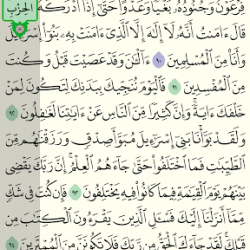 الحزب
فِرْعَوْنُ وَجُنُودُهُۥ بَغْيًا وَعَدْوًا حَتَّىٰٓ إِذَآ أَدْرَكَهُ
قَالَ ءَامَنتُ أَنَّهُۥ لَآ إِلَٰهَ إِلَّا ٱلَّذِىٓ ءَامَنَتْ بِهِۦ بَنُوٓا۟ إِسْرَٰٓءِيلَ
وَأَنَا۠ مِنَ ٱلْمُسْلِمِينَ ٩٠ ءَآلْـَٰٔنَ وَقَدْ عَصَيْتَ قَبْلُ وَكُنتَ
مِنَ ٱلْمُفْسِدِينَ ٩١ فَٱلْيَوْمَ نُنَجِّيكَ بِبَدَنِكَ لِتَكُونَ لِمَنْ
خَلْفَكَ ءَايَةً وَإِنَّ كَثِيرًا مِّنَ ٱلنَّاسِ عَنْ ءَايَٰتِنَا لَغَٰفِلُونَ ٩٢
وَلَقَدْ بَوَّأْنَا بَنِىٓ إِسْرَٰٓءِيلَ مُبَوَّأَ صِدْقٍ وَرَزَقْنَٰهُم مِّنَ
ٱلطَّيِّبَٰتِ فَمَا ٱخْتَلَفُوا۟ حَتَّىٰ جَآءَهُمُ ٱلْعِلْمُ إِنَّ رَبَّكَ يَقْضِى
بَيْنَهُمْ يَوْمَ ٱلْقِيَٰمَةِ فِيمَا كَانُوا۟ فِيهِ يَخْتَلِفُونَ ٩٣ فَإِن كُنتَ فِى شَكٍّ
مِّمَّآ أَنزَلْنَآ إِلَيْكَ فَسْـَٔلِ ٱلَّذِينَ يَقْرَءُونَ ٱلْكِتَٰبَ مِن
قَبْلِكَ لَقَدْ جَآءَكَ ٱلْحَقُّ مِن رَّبِّكَ فَلَا تَكُونَنَّ مِنَ ٱلْمُمْتَرِينَ ٩٤